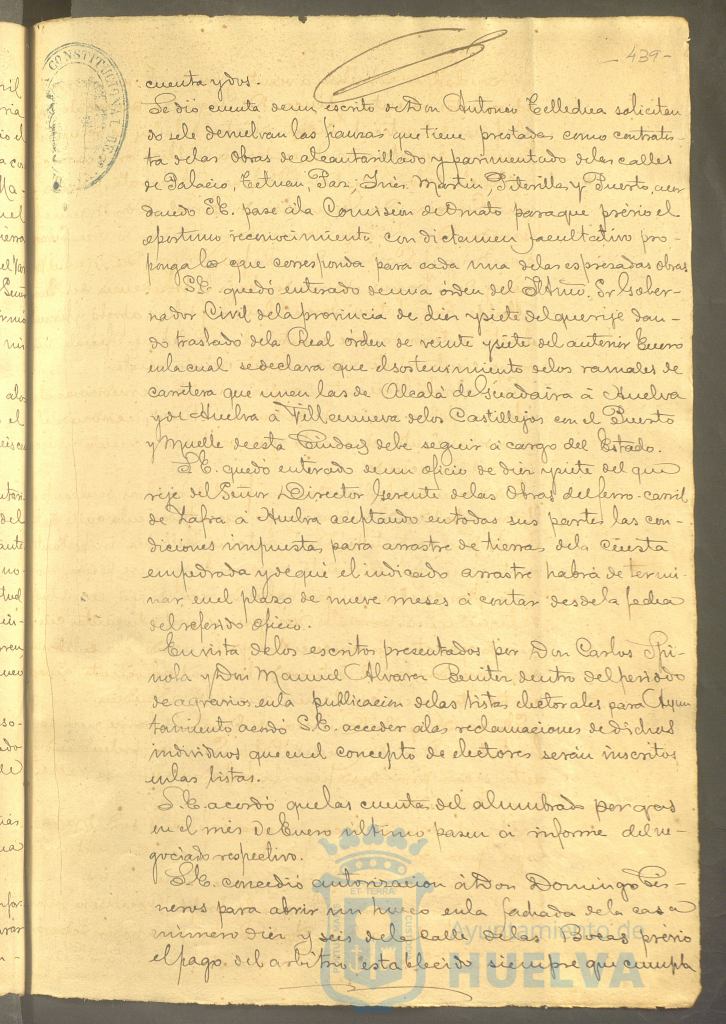 - 439 -
CONSTITUCIONAL DE
cuenta y dos.
Se dió cuenta de un escrito de Don Antonio Telledua solicitan-
do se le devuelvan las fianzas que tiene prestadas como contratis-
ta de las obras de alcantarillado y pavimentado de las calles
de Palacio, Tetuan, Paz, Ines Martin, Piterilla y Puerto, acor
dando S.E. pase á la Comision de Ornato para que prévio el
oportuno reconocimiento con dictamen facultativo pro-
ponga lo que corresponda para cada una de las espresadas obras
S.E. quedó enterado de una órden del Iltmo. Sr Gober-
nador Civil de la provincia de diez y siete del que rije dan-
do traslado de la Real órden de veinte y siete del anterior Enero
en la cual se declara que el sostenimiento de los ramales de
carretera que unen las de Alcalá de Guadaira á Huelva
y de Huelva á Villanueva de los Castillejos con el Puerto
y Muelle de esta Ciudad debe seguir á cargo del Estado.
S.E. quedó enterado de un oficio de diez y siete del que
rije del Señor Director Gerente de las Obras del ferro-carril
de Zafra á Huelva aceptando en todas sus partes las con-
diciones impuestas para arrastre de tierras de la cuesta
empedrada y de que el indicado arrastre habrá de termi-
nar en el plazo de nueve meses á contar desde la fecha
del referido oficio.
En vista de los escritos presentados por Don Carlos Spi-
nola y Don Manuel Alvarez Benitez dentro del periodo
de agravios en la publicacion de las listas electorales para Ayun
tamiento acordó S.E. acceder á las reclamaciones de dichos
individuos que en el concepto de electores serán inscritos
en las listas.
S.E. acordó que las cuentas del alumbrado por gas
en el mes de Enero ultimo pasen á informe del ne-
gociado respectivo.
S.E. concedió autorizacion á Don Domingo Cis-
neros para abrir un hueco en la fachada de la casa
número diez y seis de la calle de las Bocas prévio
el pago del arbitrio establecido siempre que cumpla
Ayuntamiento de
HUELVA